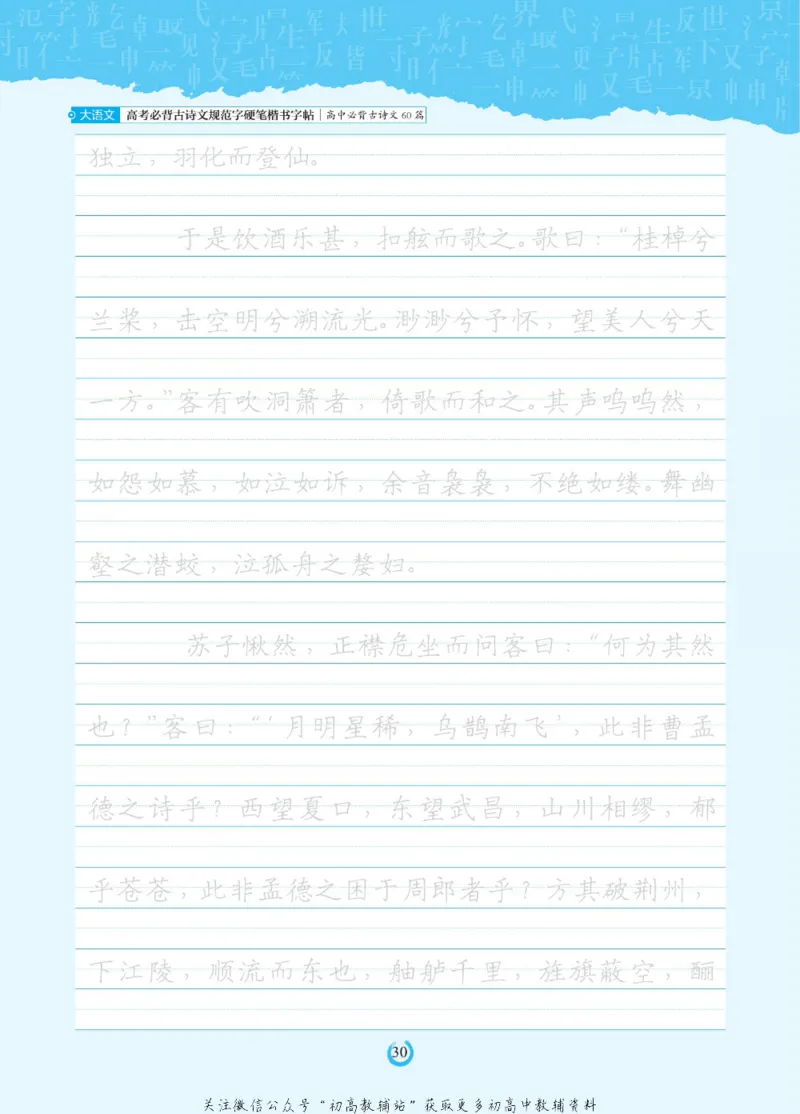 大语文 高考必背古诗文规范字硬笔楷书字帖 | 高中必背古诗文60篇
独立，羽化而登仙。
于是饮酒乐甚，扣舷而歌之。歌曰：“桂棹兮
兰桨，击空明兮溯流光。渺渺兮予怀，望美人兮天
一方。”客有吹洞箫者，倚歌而和之。其声呜呜然，
如怨如慕，如泣如诉，余音袅袅，不绝如缕。舞幽
壑之潜蛟，泣孤舟之嫠妇。
苏子愀然，正襟危坐而问客曰：“何为其然
也？”客曰：“‘月明星稀，乌鹊南飞’，此非曹孟
德之诗乎？西望夏口，东望武昌，山川相缪，郁
乎苍苍，此非孟德之困于周郎者乎？方其破荆州，
下江陵，顺流而东也，舳舻千里，旌旗蔽空，酾
30
关注微信公众号“初高教辅站”获取更多初高中教辅资料